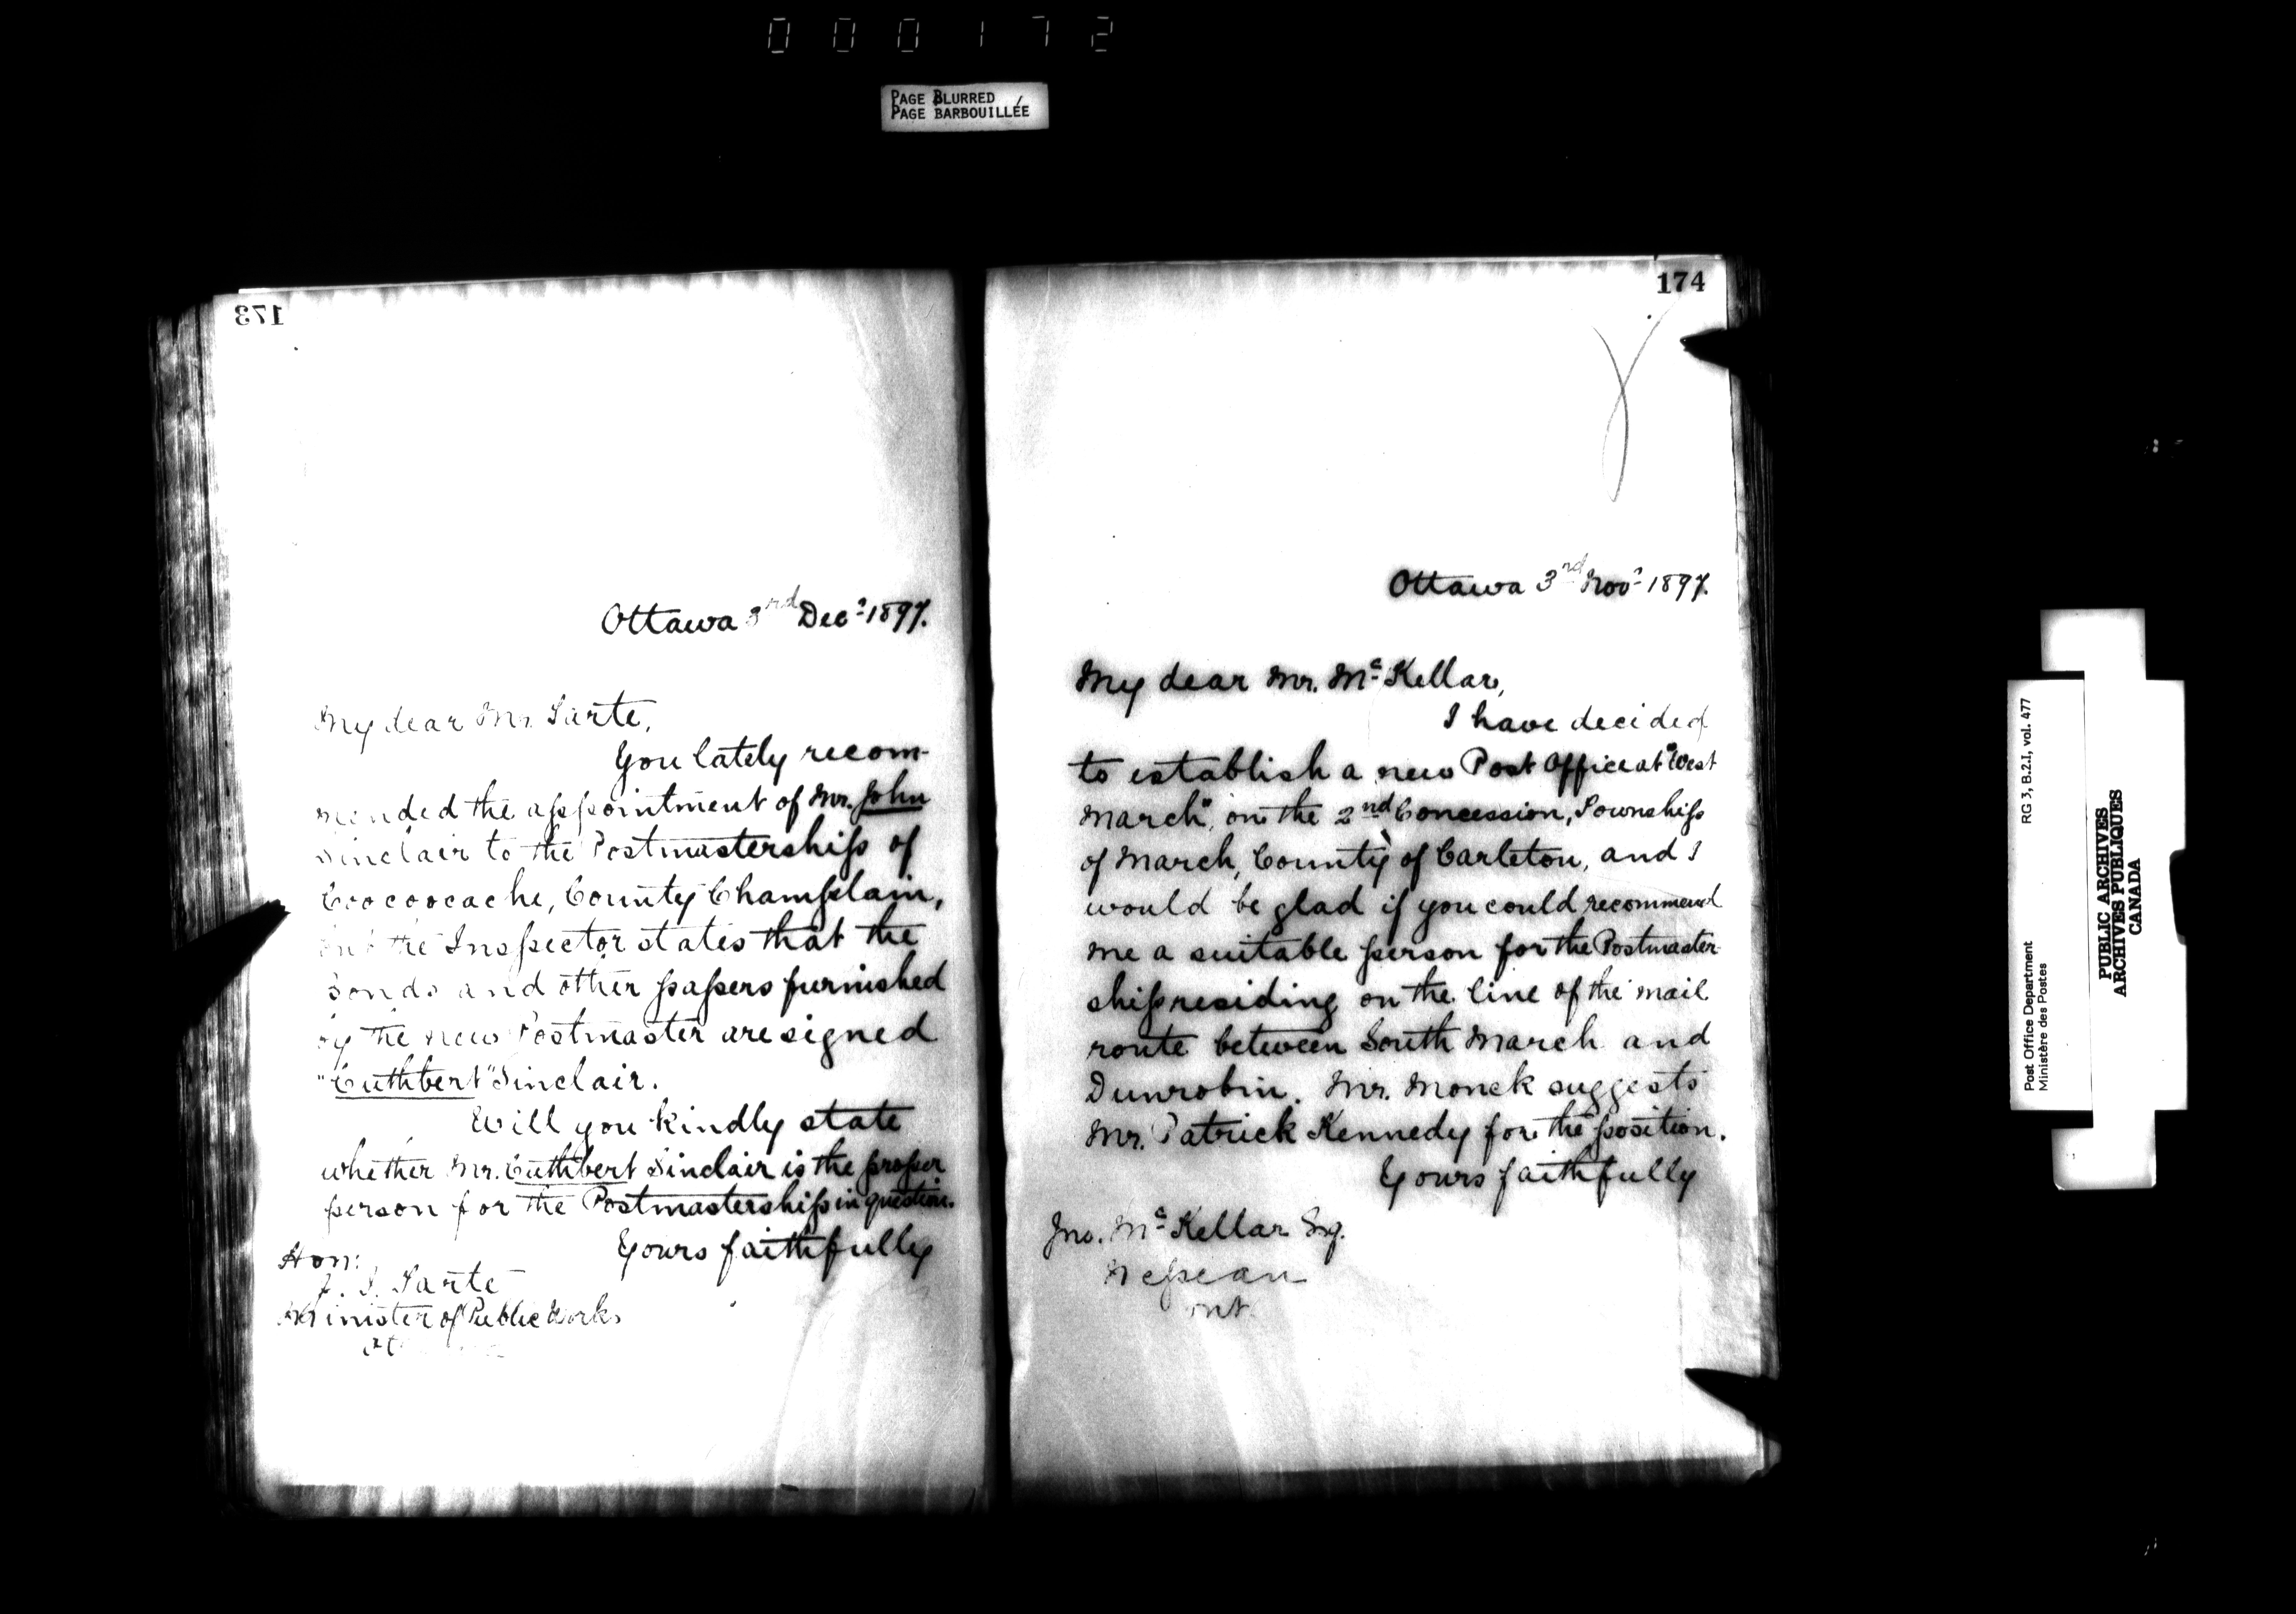 000172
PAGE BLURRED
PAGE BARBOUILLÉE
173
Ottawa 3rd Decr 1897.
My dear Mr. Tarte,
You lately recom-
mended the appointment of Mr. John
Sinclair to the Postmastership of
Coocoocache, County Champlain,
but the Inspector states that the
bonds and other papers furnished
by the new Postmaster are signed
"Cuthbert" Sinclair.
Will you kindly state
whether Mr. Cuthbert Sinclair is the proper
person for the Postmastership in question.
Yours faithfully
Hon:
J. I. Tarte
Minister of Public Works
174
Ottawa 3rd Novr 1897.
My dear Mr. McKellar,
I have decided
to establish a new Post Office at "West
March", on the 2nd Concession, Township
of March, County of Carleton, and I
would be glad if you could recommend
me a suitable person for the Postmaster-
ship residing on the line of the mail
route between South March and
Dunrobin. Mr. Monck suggests
Mr. Patrick Kennedy for the position.
Yours faithfully
Jno. McKellar Esq.
Nepean
Ont.
Post Office Department
Ministère des Postes
RG 3, B.2.I, vol. 477
PUBLIC ARCHIVES
ARCHIVES PUBLIQUES
CANADA